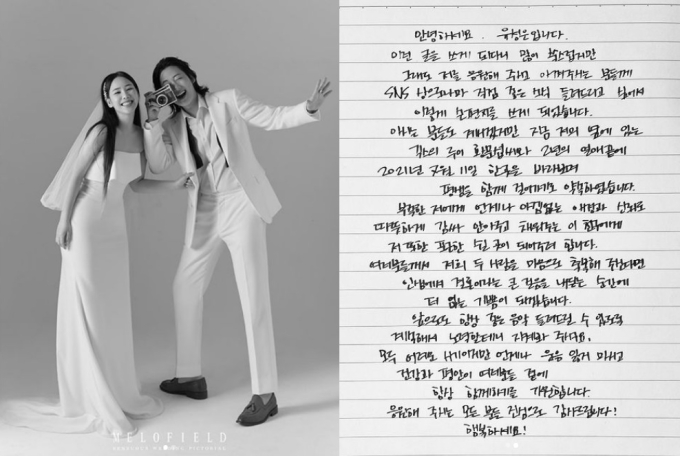 안녕하세요. 유성은입니다.
이런 글을 쓰게 되다니 많이 쑥스럽지만
그래도 저를 응원해 주고 아껴주는 분들께
SNS 상으로나마 직접 좋은 소식 들려드리고 싶어서
이렇게 손편지를 쓰게 되었습니다.
아시는 분들도 계시겠지만 지금 저의 옆에 있는
긱스의 루이 황문섭씨와 2년의 연애끝에
2021년 7월 11일 한곳을 바라보며
평생을 함께 걸어가기로 약속하였습니다.
부족한 저에게 언제나 아낌없는 애정과 신뢰로
따뜻하게 감싸 안아주고 채워주는 이 친구에게
저 또한 포근한 쉴 곳이 되어주려 합니다.
여러분들께서 저희 두 사람을 마음으로 축복해 주신다면
인생에서 결혼이라는 큰 걸음을 내딛는 순간에
더 없는 기쁨이 되겠습니다.
앞으로도 항상 좋은 음악 들려드릴 수 있도록
계속해서 노력할테니 지켜봐 주시고,
모두 어려운 시기이지만 언제나 웃음 잃지 마시고
건강과 평안이 여러분들 곁에
항상 함께하기를 기원합니다.
응원해 주시는 모든 분들 진심으로 감사드립니다!
행복하세요!
MELOFIELD